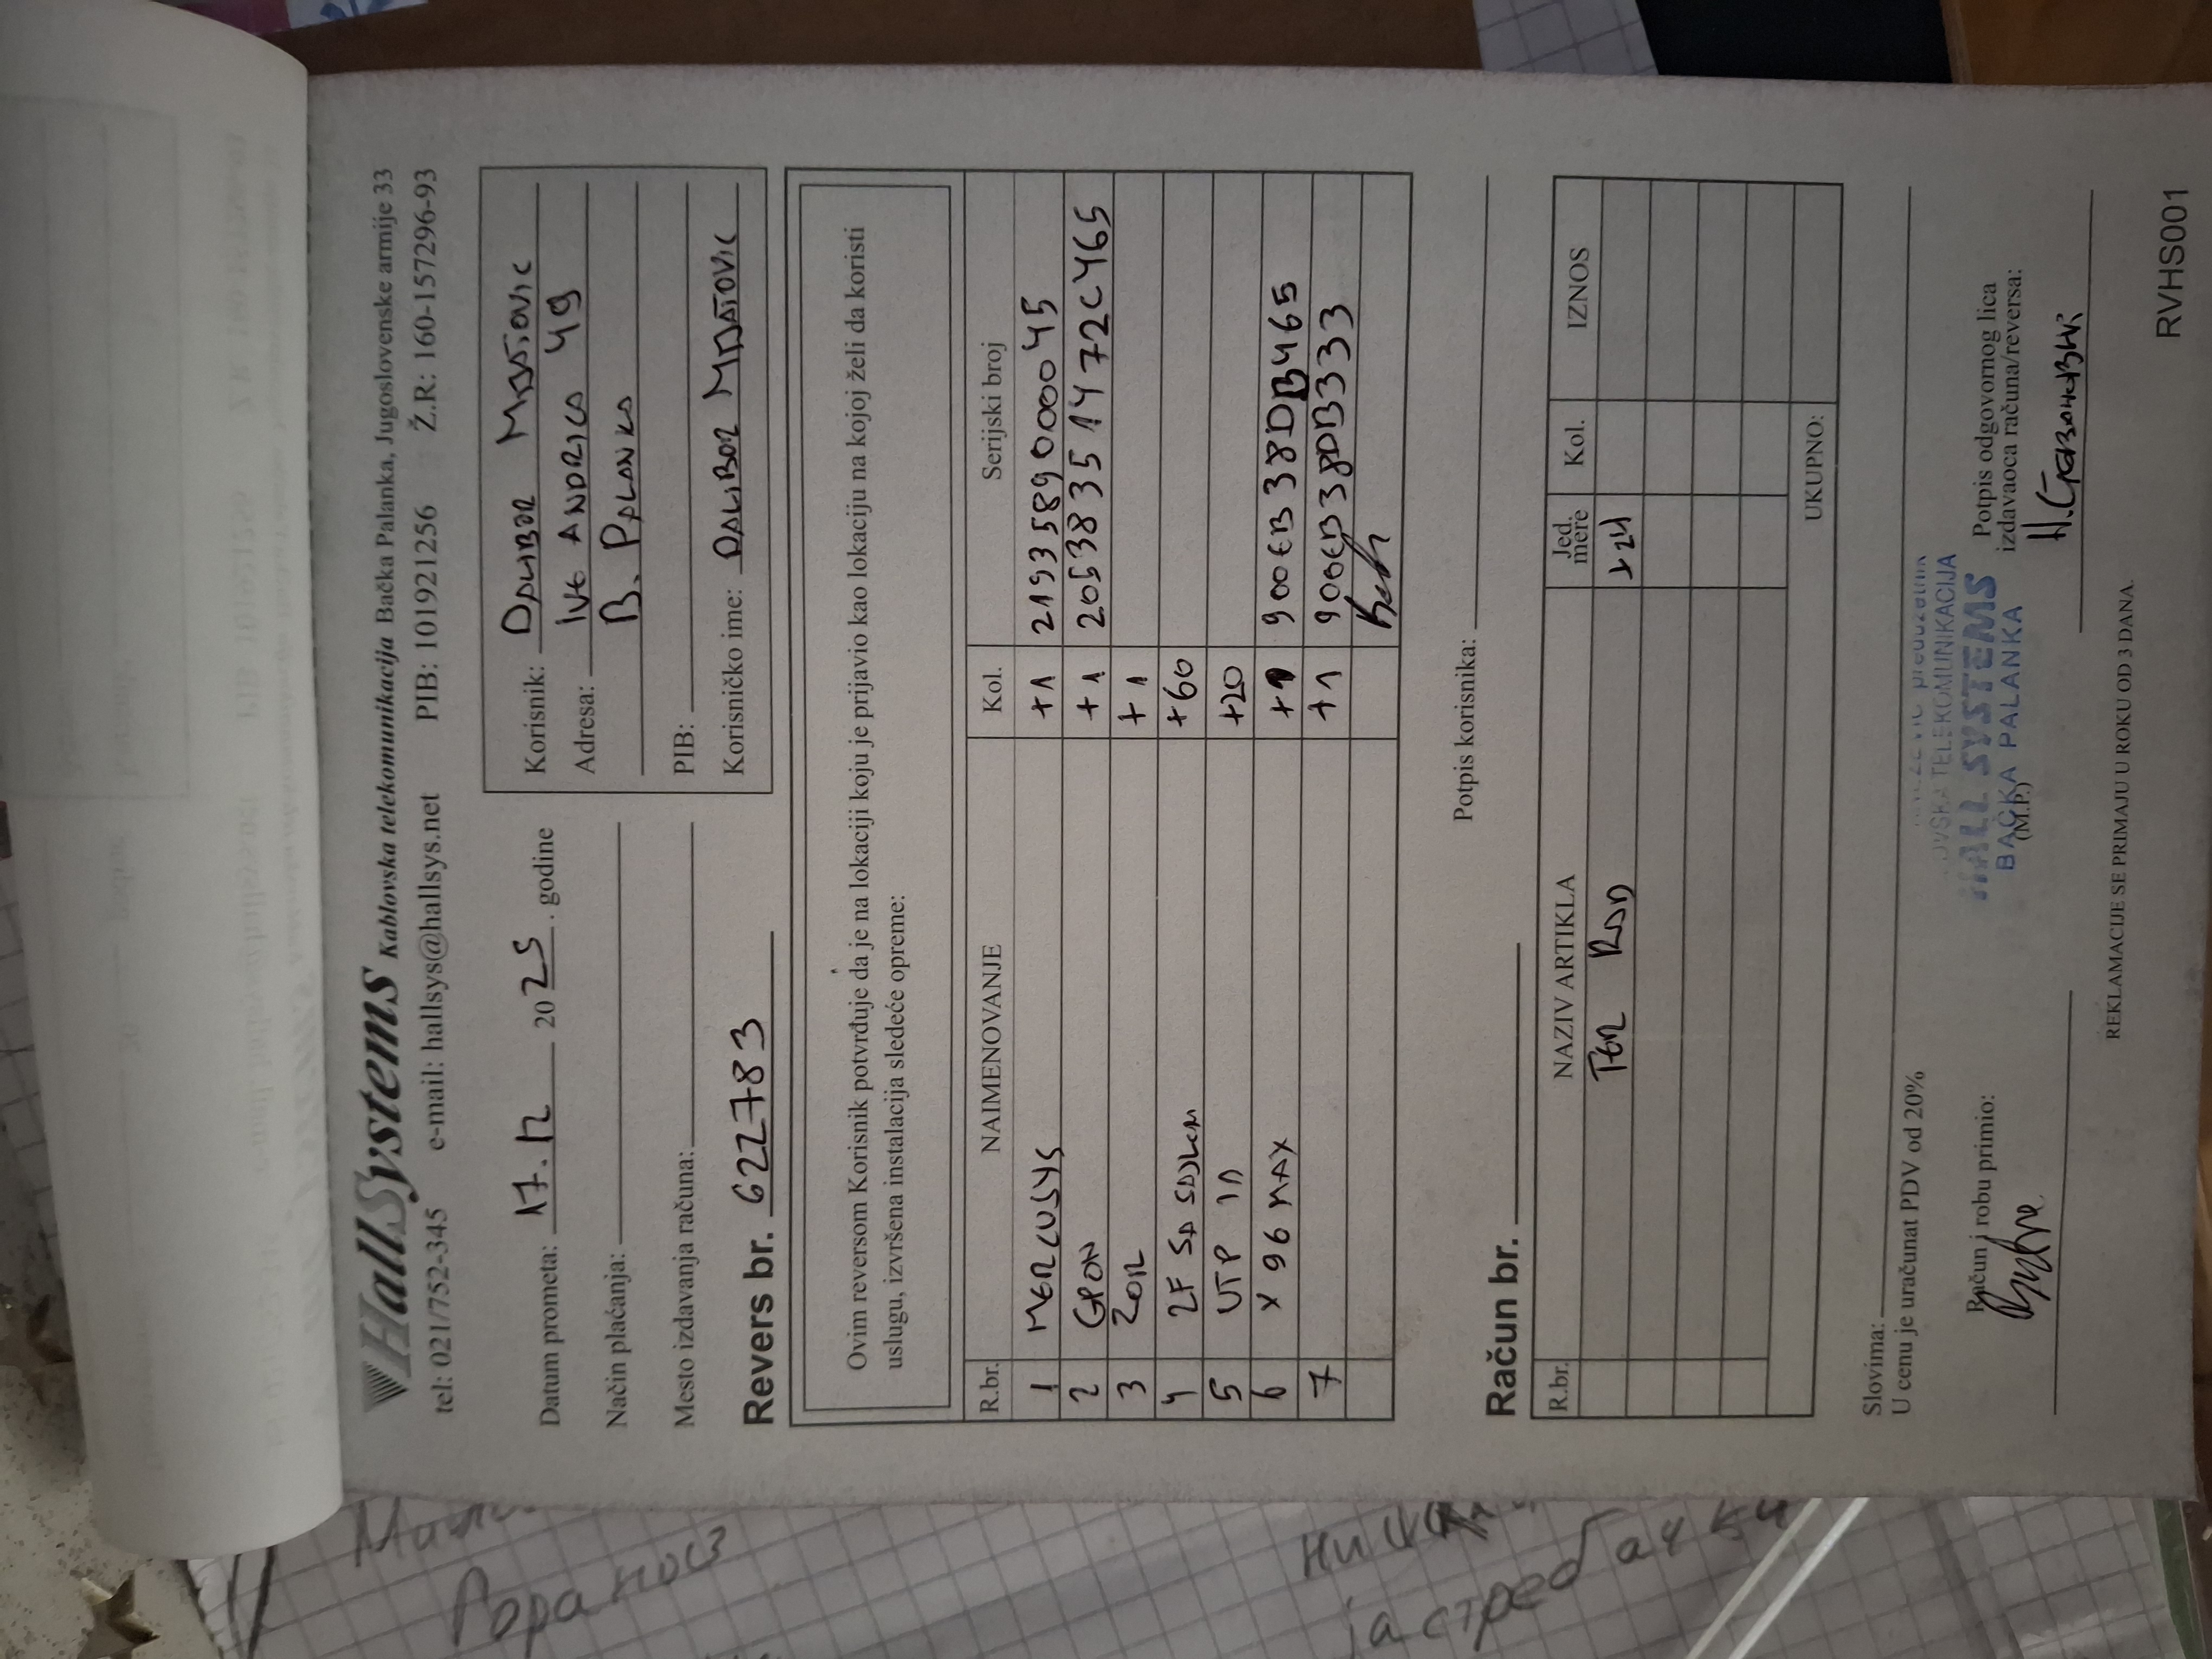 HallSystems Kablovska telekomunikacija Bačka Palanka, Jugoslovenske armije 33
tel: 021/752-345 e-mail: hallsys@hallsys.net PIB: 101921256 Ž.R: 160-157296-93
Datum prometa: 17.12 2025. godine
Način plaćanja:
Mesto izdavanja računa:
Korisnik: DALIBOR MIJATOVIC
Adresa: IVE ANDRICA 49
B. PALANKA
PIB:
Korisničko ime: DALIBOR MIJATOVIC
Revers br. 622783
Ovim reversom Korisnik potvrđuje da je na lokaciji koju je prijavio kao lokaciju na kojoj želi da koristi
uslugu, izvršena instalacija sledeće opreme:
R.br. NAIMENOVANJE Kol. Serijski broj
1 MERCUSYS +1 2193589000045
2 GPON +1 20538351472C465
3 ZOR +1
4 2F SA SAJLOM +60
5 UTP IN +20
6 X96 MAX +1 900EB38DB465
7 +1 900EB38DB333
Potpis korisnika:
Račun br.
R.br. NAZIV ARTIKLA Jed. mere Kol. IZNOS
TER RAD
UKUPNO:
Slovima:
U cenu je uračunat PDV od 20%
TELEKOMUNIKACIJA
HALL SYSTEMS
BAČKA PALANKA
(M.P.)
Račun i robu primio:
Potpis odgovornog lica
izdavaoca računa/reversa:
REKLAMACIJE SE PRIMAJU U ROKU OD 3 DANA.
RVHS001
јастребачки